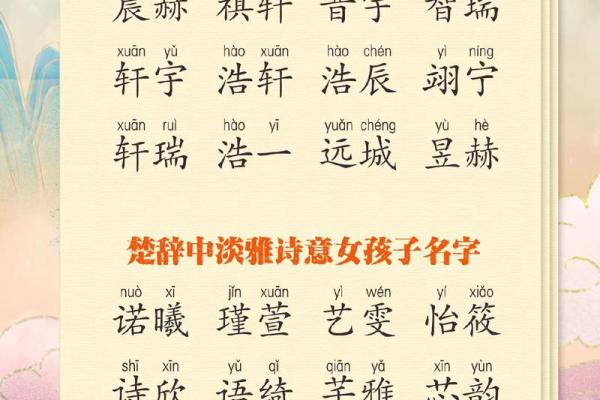 辰赫 祺轩 晋宇 智瑞
xuān yǔ hào xuān hào chén yì níng
轩宇 浩轩 浩辰 翊宁
xuān ruì hào yī yuǎn chéng yù hè
轩瑞 浩一 远城 昱赫
楚辞中淡雅诗意女孩子名字
nuò xī jǐn xuān yì wén yí xiǎo
诺曦 瑾萱 艺雯 怡筱
shī xīn yǔ qǐ qiān yǎ xīn yùn
诗欣 语绮 芊雅 芯韵